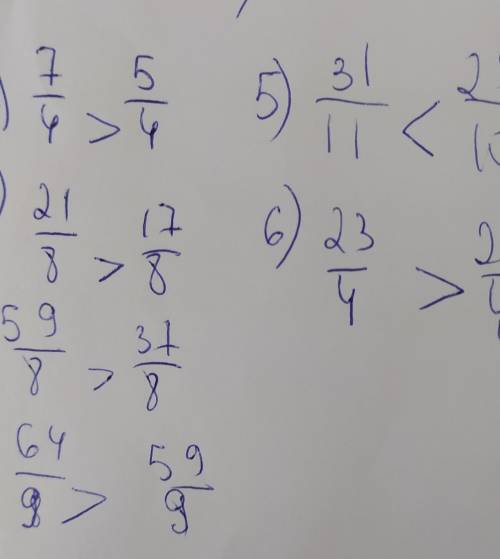 ) 7/4 > 5/4
) 21/8 > 17/8
59/8 > 37/8
64/9 > 59/9
5) 31/11 <
6) 23/4 >